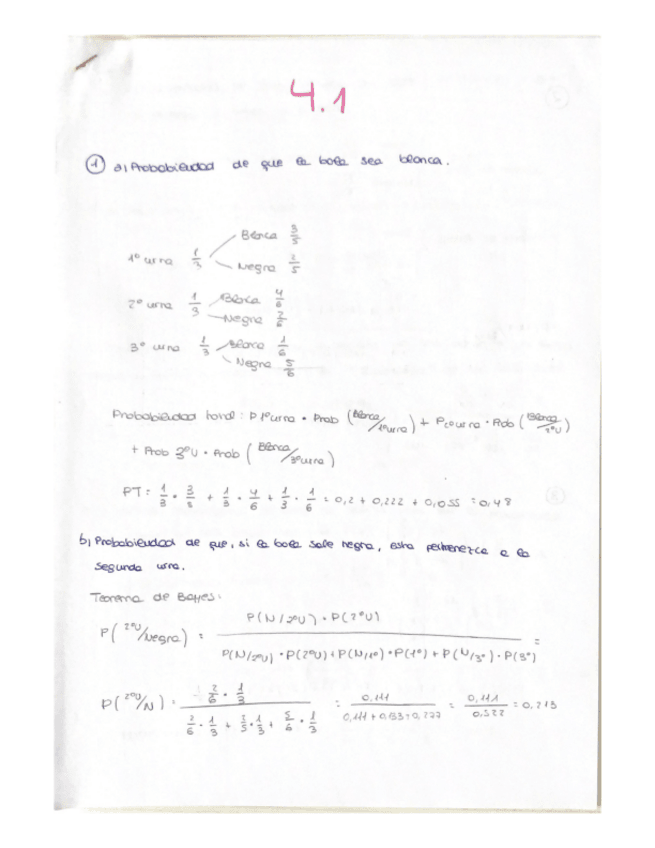 4.1
① a) Probabilidad de que la bola sea blanca.
1º urna 1/3 Blanca 3/5
Negra 2/5
2º urna 1/3 Blanca 4/6
Negra 2/6
3º urna 1/3 Blanca 1/6
Negra 5/6
Probabilidad total: P 1º urna · Prob (Blanca/1º urna) + P 2º urna · Prob (Blanca/2ºU)
+ Prob 3ºU · Prob (Blanca/3º urna)
PT: 1/3 · 3/5 + 1/3 · 4/6 + 1/3 · 1/6 = 0,2 + 0,222 + 0,055 = 0,48
b) Probabilidad de que, si la bola sale negra, esta pertenezca a la
segunda urna.
Teorema de Bayes:
P(2ºU/Negra) = P(N/2ºU) · P(2ºU) / P(N/2ºU) · P(2ºU) + P(N/1º) · P(1º) + P(N/3º) · P(3º) =
P(2ºU/N) = 2/6 · 1/3 / 2/6 · 1/3 + 2/5 · 1/3 + 5/6 · 1/3 = 0,111 / 0,111 + 0,133 + 0,277 = 0,111 / 0,522 = 0,213